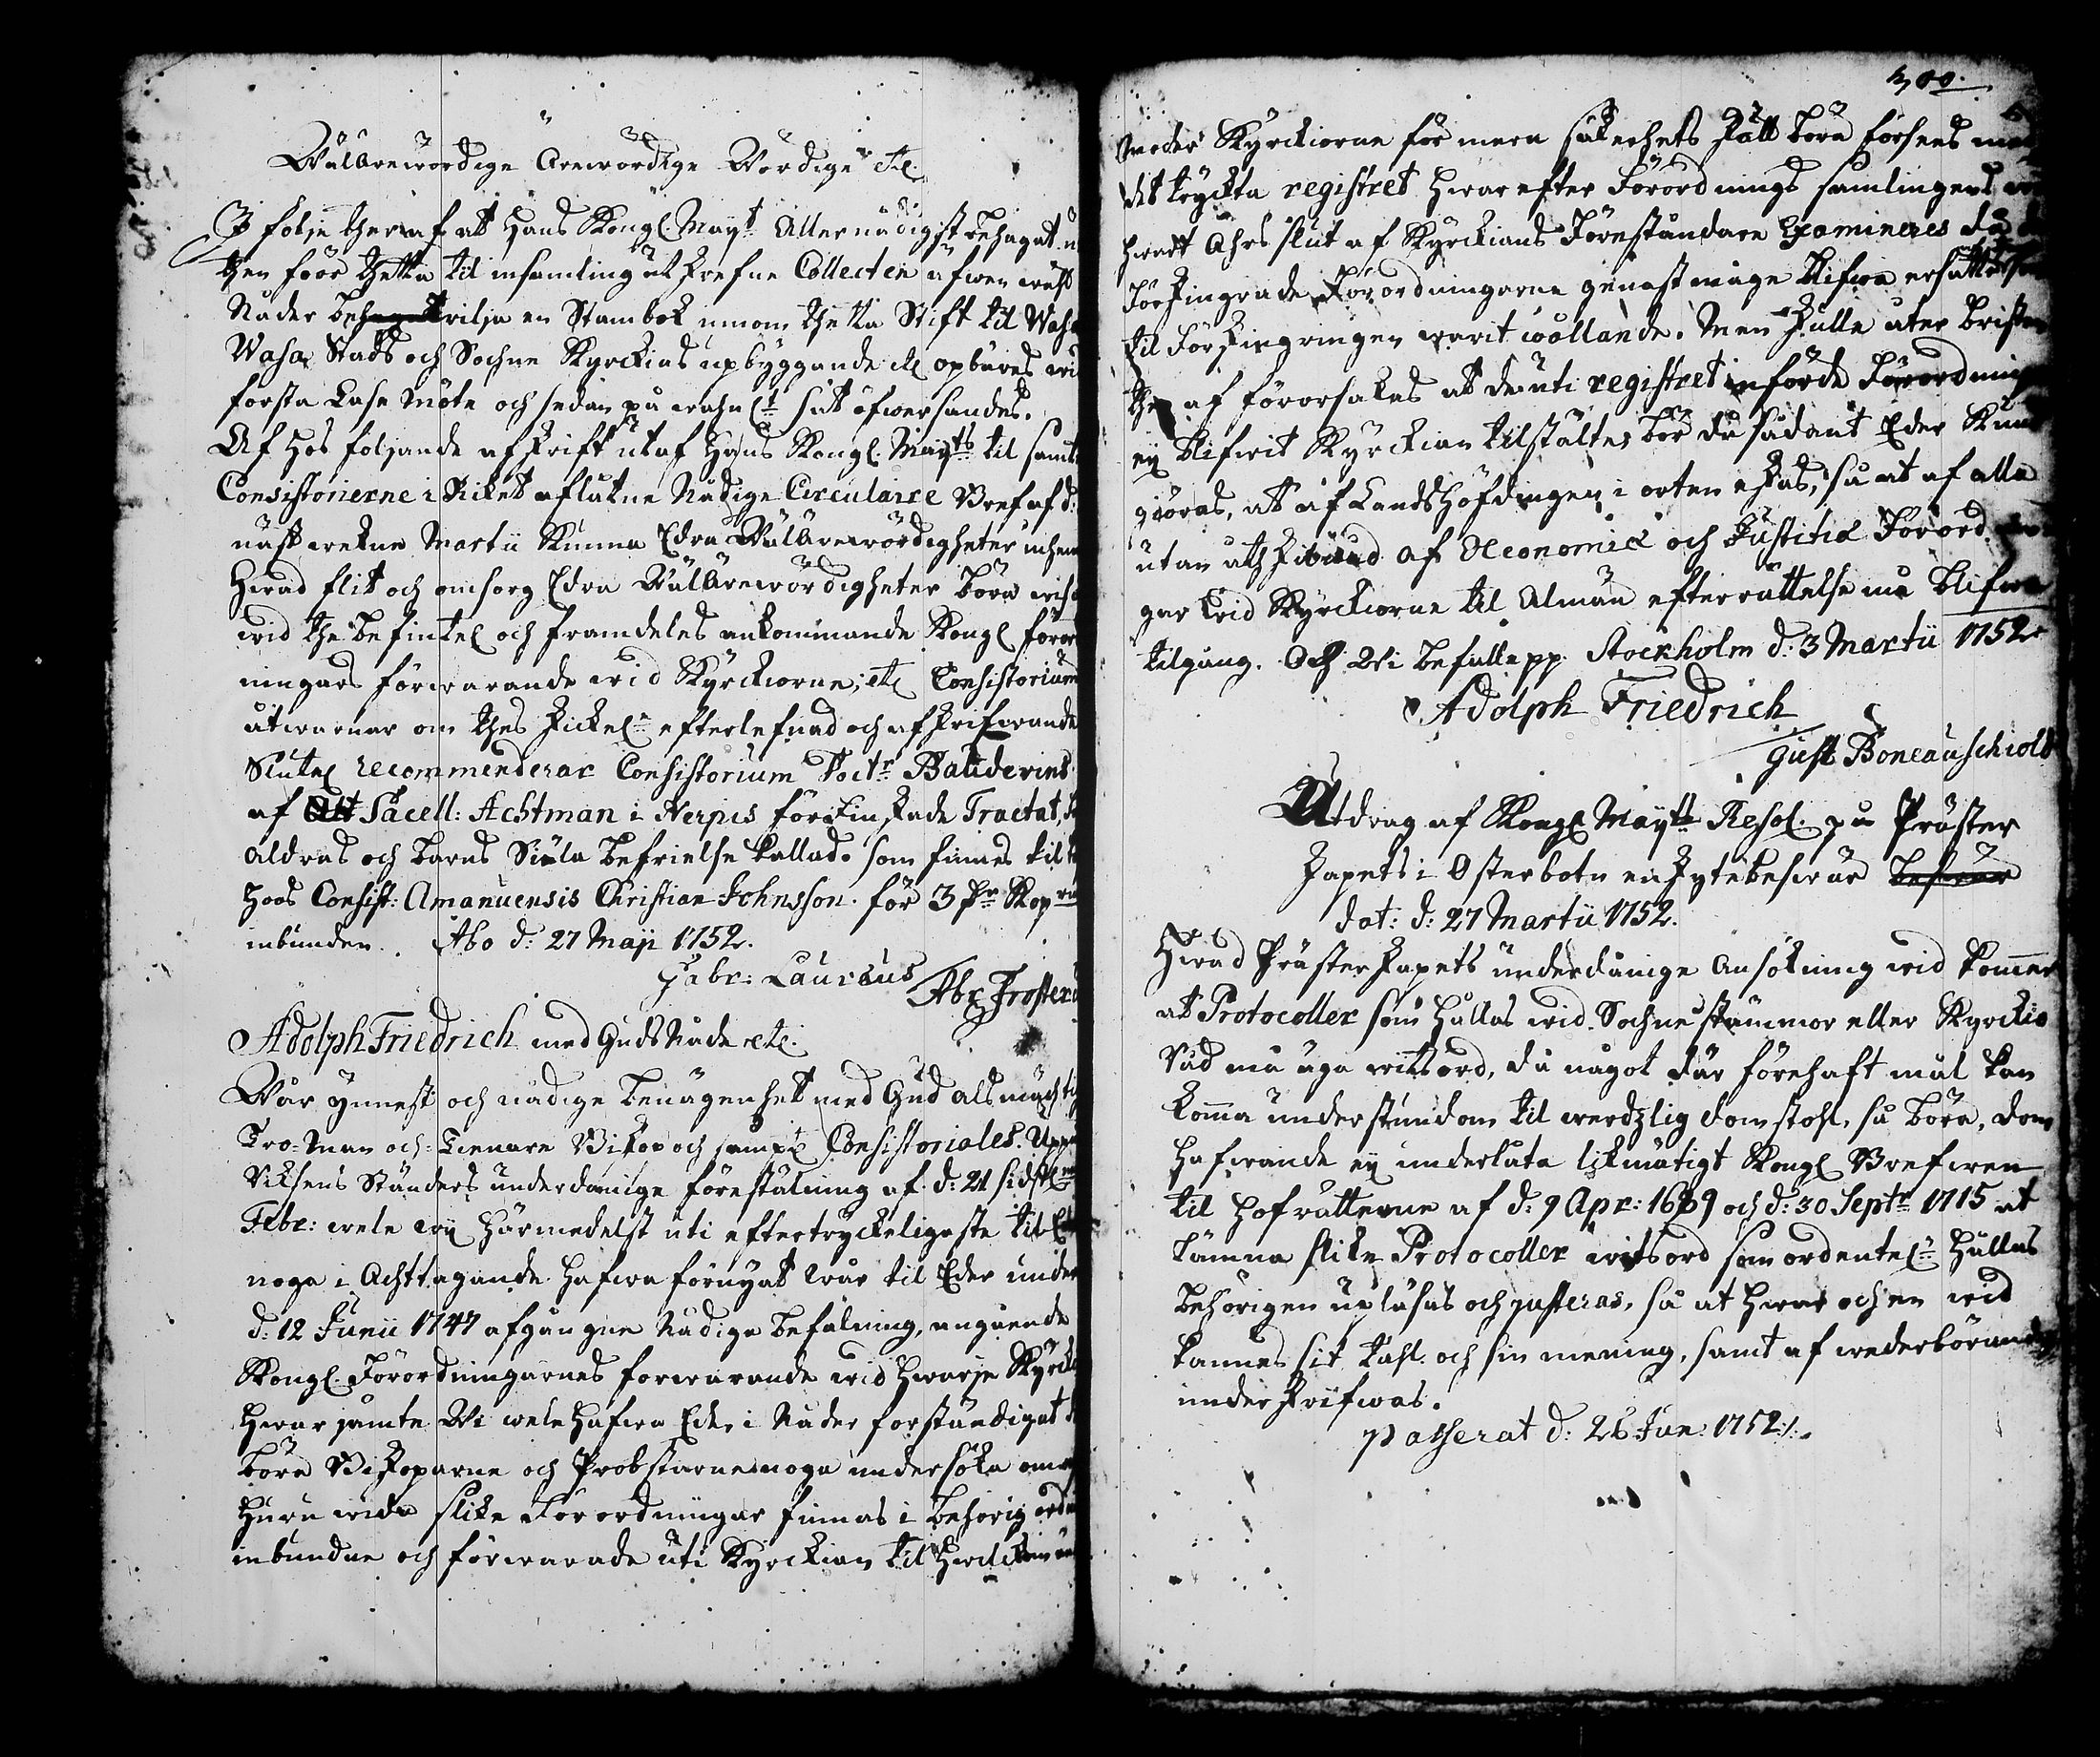 WälÄrewördige Ärewördige Wördige etc.
I följe ther af att Hans Kongl. Mayt Allernådigst behagat
then förr thetta til insamling utskrefne Collecten äfwen
Nåder behagat wilja en Stambok innom thetta Stift til
Wasa Stads och Sochne Kyrckias upbyggande etc opbäres
första Lase Möte och sedan på wahnlt sät öfwersandes.
Af hos foljande afskrift utaf Hans Kongl. Mayts til samtl
Consistorierne i Riket aflåtne Nådige Circulaire Bref af d:
näst wekne Martii kunna Edra WälÄrewördigheter inhem
hwad flit och omsorg Edra WälÄrewördigheter böra
wid the befintel och framdeles ankommande Kongl föror
ningars förwarande wid Kyrckiorne; etc Consistorium
åtwarnar om thes skickel efterlefnad och afskrifwande
Slutel recommenderar Consistorium Doctr Balldevins
af Att Sacell: Achtman i Nerpis förswenskade Tractat,
Aldras och barns Siäla befrielse kallad. som finnes til
hoos Consist: Amanuensis Christian Johnsson. för 3 Pr Kopr
inbunden. Åbo d: 27 Maji 1752.
Gabr: Lauræus
Abr. Froster
Adolph Friedrich med Guds Nåde etc.
Wår ynnest och nådige benägenhet med Gud alsmächtig
Tro-Man och Tienare Biskop och sampl Consistoriales. Uppå
Riksens Ständers underdånige förestälning af d: 21 sidstl
Febr: wele wij härmedelst uti eftertryckeligaste til
noga i Achttagande hafwa förnyat Wår til Eder under
d: 12 Junii 1747 afgångne Nådige befalning, angående
Kongl. Förordningarnes forwarande wid hwarje Kyrck
hwar jämte Wi wele hafwa Eder i Nåder forständigat
böra Biskoparne och Probstarne noga undersöka om
huru wida slike Förordningar finnas i behörig ord
inbundne och förwarade uti Kyrckian til hwilcken
300.
moder Kyrckiorne för mera säkerhets skull böra förses
det tryckta registret hwar efter Förordnings samlingens
hwart Åhrs slut af Kyrckians Föreståndare Examineres då
förskingrade Förordningarne genast måge blifwa ersatte
til Förskingringen warit wållande. Men skulle åter bristen
ther af förorsakas att de uti registret införde Förordning
ej blifwit Kyrckian tilstälte, bör då sådant Eder kunn
giöras, at af Landshöfdingen i orten eskas, så at af alla
utan åthskilnad af Oeconomiæ och Justitiæ Förord
gar wid Kyrckiorne til Alman efterrättelse må blifwa
tilgång. Och Wi befalle pp. Stockholm d: 3 Martii 1752.
Adolph Friedrich
Gust Boneauschiold
Utdrag af Kongl Mayts Resol. på Präster
skapets i Österbotn enskylte beswär beswär
dat: d: 27 Martii 1752.
Hwad Prästerskapets underdånige Ansökning wid kommer
at Protocoller som hållas wid Sochnestämmor eller Kyrckio
Råd må äga witsord, då något där förehaft mål kan
komma understundom til werdzlig domstohl, så böra, dom
hafwande ej underlåta likmätigt Kongl Brefwen
til Hofrätterne af d: 9 Apr: 1689 och d: 30 Septr 1715 at
lämna slike Protocoller witsord som ordentel hållas
behörigen upläsas och justeras, så at hwar och en wid
kännes sit tahl. och sin mening, samt af wederbörande
underskrifwas.
Passerat d: 26 Jun: 1752.